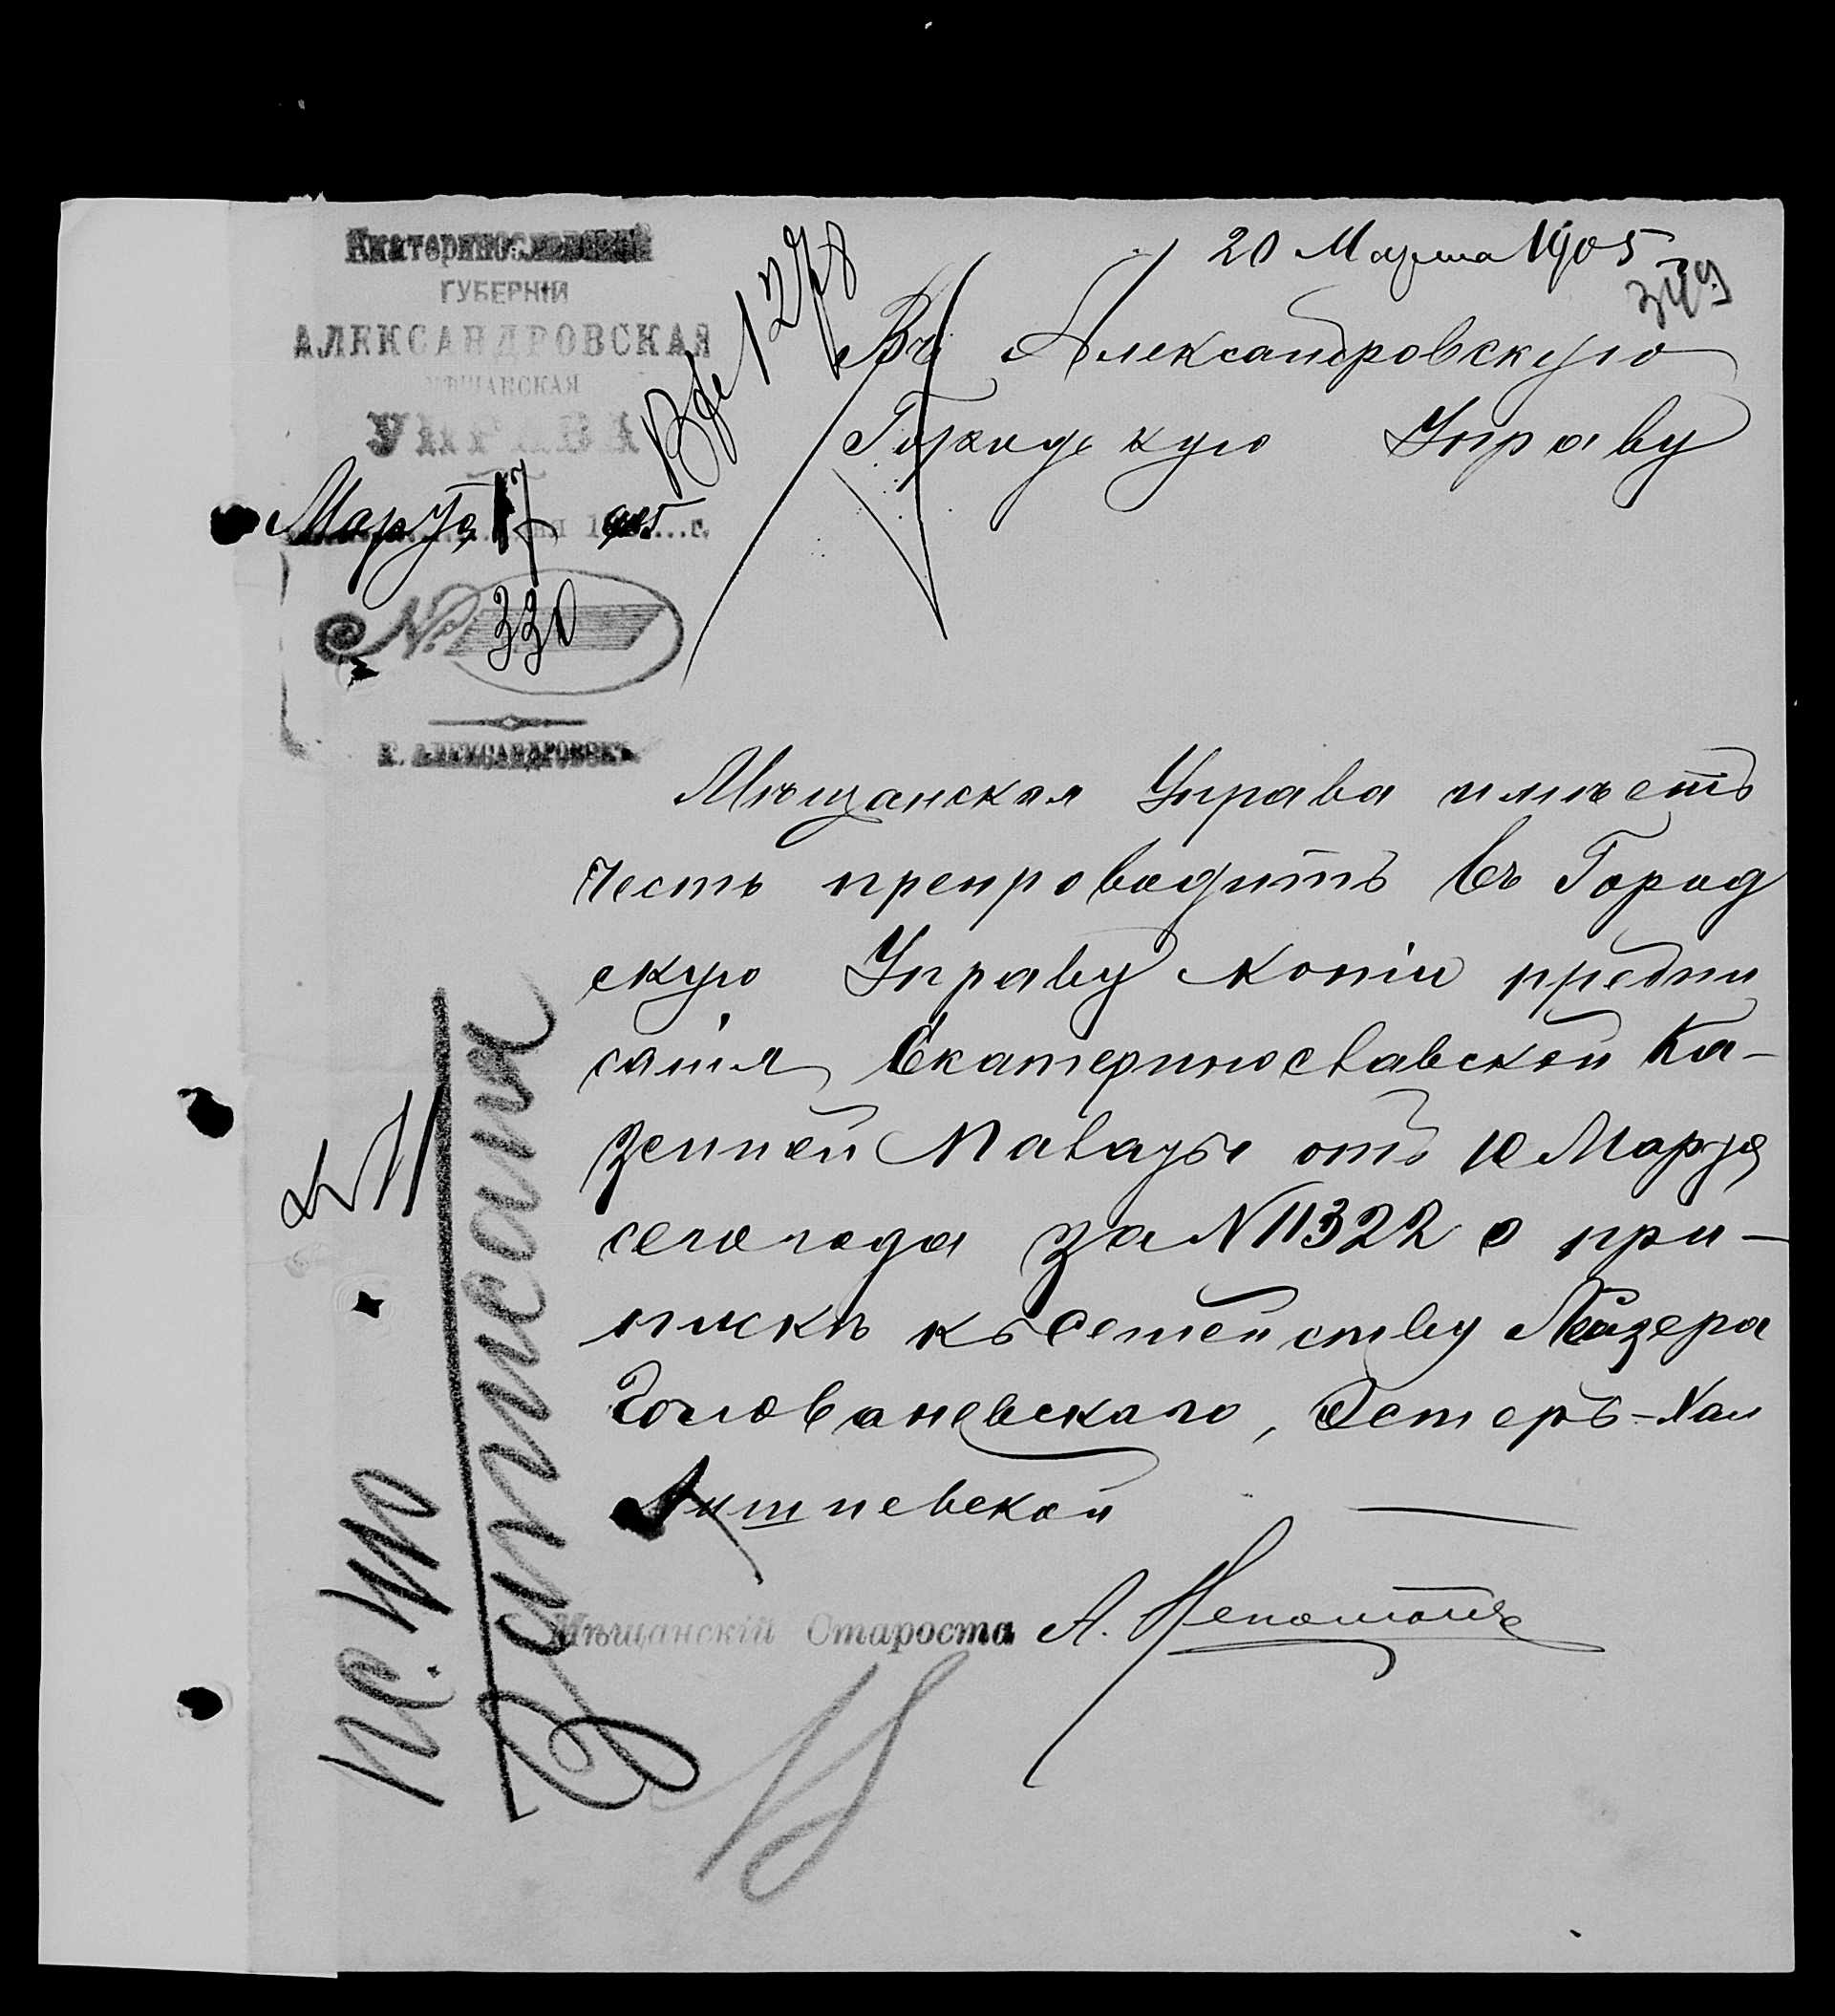 Екатеринославской
ГУБЕРНІИ
АЛЕКСАНДРОВСКАЯ
МѢЩАНСКАЯ
УПРАВА
Марта 17 дня 1905 г.
№ 330
Г. АЛЕКСАНДРОВСКЪ
1278
20 Марта 1905
Въ Александровскую
Городскую Управу
Мѣщанская Управа имѣетъ
честь препроводить въ Город
скую Управу копію предпи
санія Екатеринославской Ка-
зенной Палаты отъ 10 Марта
сего года за № 11322 о при-
пискѣ къ семейству Лейзера
Голованевскаго, Эстеръ-Хаи
Мѣщанскій Староста А.